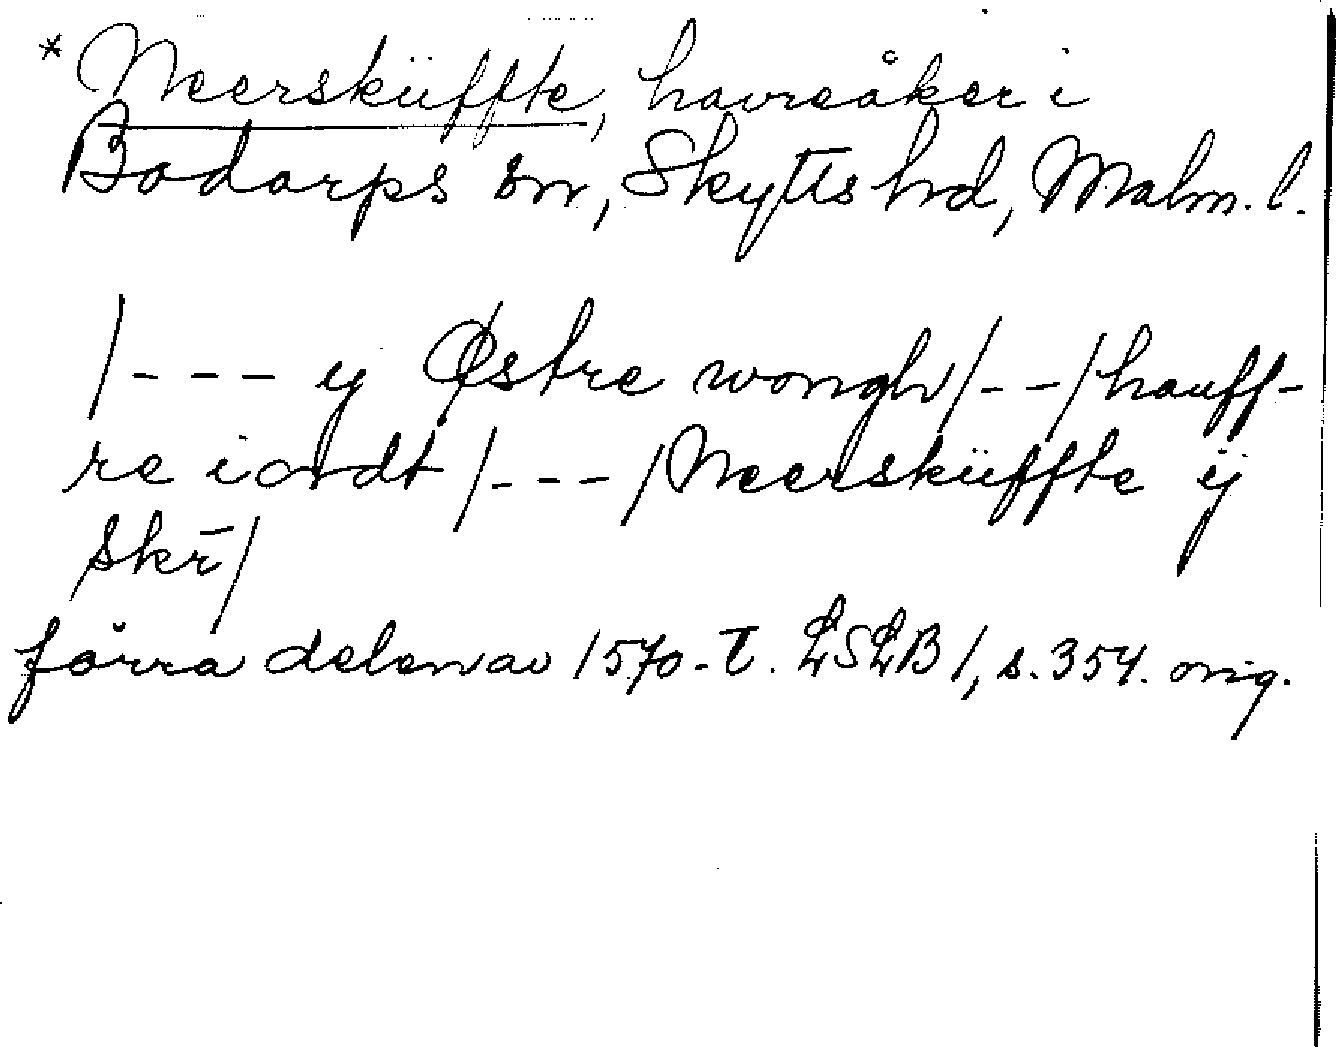 *Neersküffte, havreåker i
Bodarps sn, Skytts hd, Malm. l.
/--- y Østre wongh/--/hauff-
re iordt/---/Neersküffte ÿ
skr̄/
förra delen av 1570-t. LSLB 1, s. 354. orig.